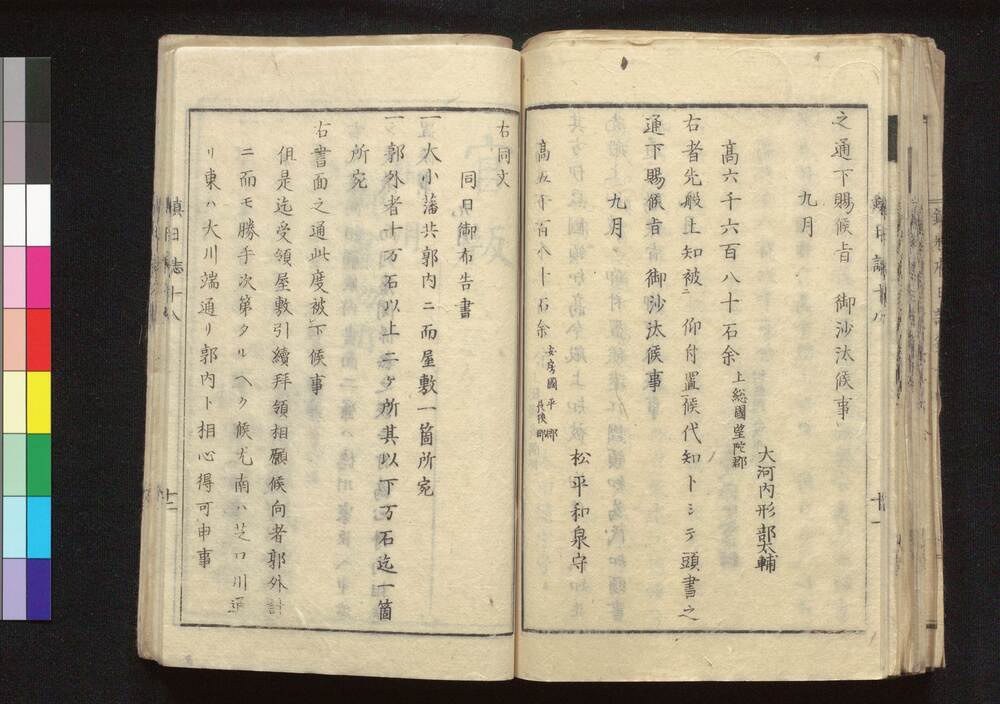 之通下賜候旨　御沙汰候事
九月
大河内形部太輔
高六千六百八十石余　上総國望陀郡
右者先般上知被　仰付置候代知トシテ頭書之
通下賜候旨　御沙汰候事
九月
松平和泉守
高五千百八十石余　安房國平郡
長狹郡
右同文
同日御布告書
一大小藩共郭内ニ而屋敷一箇所宛
一郭外者十万石以上二ケ所其以下万石迄一箇
所宛
右書面之通此度被下候事
但是迄受領屋敷引續拜領相願候向者郭外計
ニ而モ勝手次第タルヘク候尤南ハ芝口川通
リ東ハ大川端通リ郭内ト相心得可申事
鎮日志十八
十二
十一